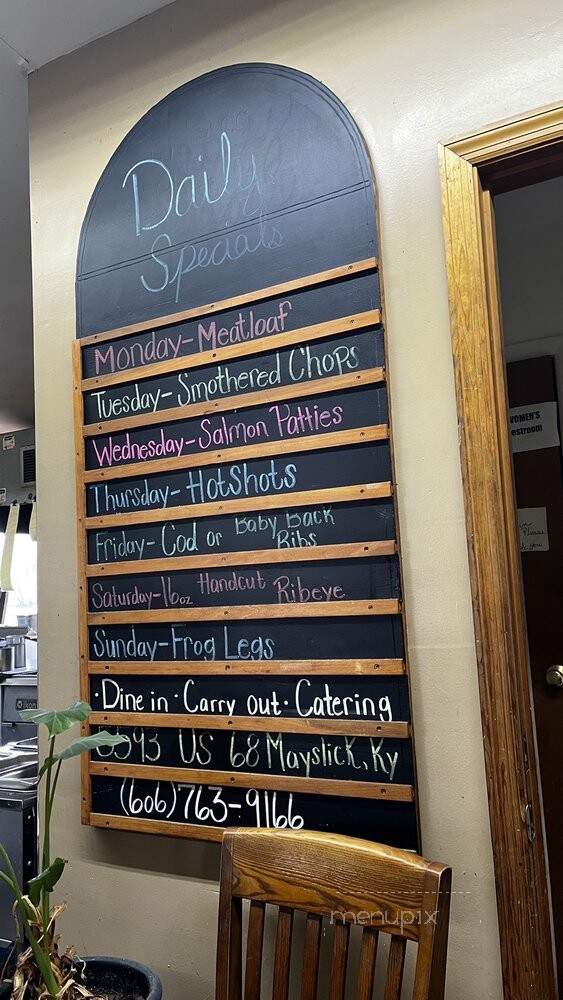 Daily
Specials
Monday-Meatloaf
Tuesday-Smothered Chops
Wednesday-Salmon Patties
Thursday-HotShots
Friday-Cod or Baby Back
Ribs
Saturday-16oz Handcut Ribeye
Sunday-Frog Legs
·Dine in·Carry out·Catering
5593 US 68 Mayslick, Ky
(606)763-9166
WOMEN'S
Restroom
menupix